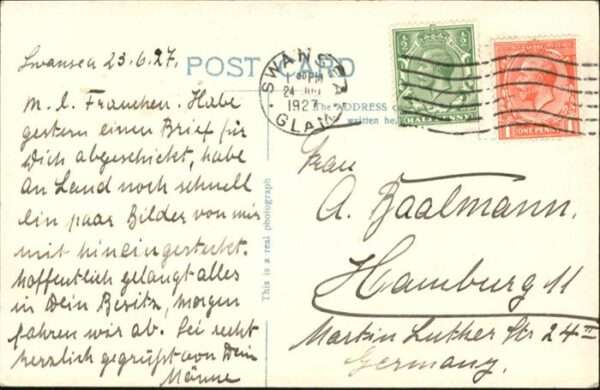 Swansea 23.6.27.
POST CARD
M. l. Frauchen. Habe
gestern einen Brief für
Dich abgeschickt, habe
an Land noch schnell
ein paar Bilder von mir
mit hineingesteckt.
Hoffentlich gelangt alles
in Dein Besitz, morgen
fahren wir ab. Sei recht
herzlich gegrüßt von Dein
Männe
This is a real photograph
The ADDRESS
written he
SWANSEA
PM
24
1927
GLAM
HALFPENNY
1 ONE PENNY
Frau
A. Baalmann.
Hamburg 11
Martin Luther Str 24 II
Germany.